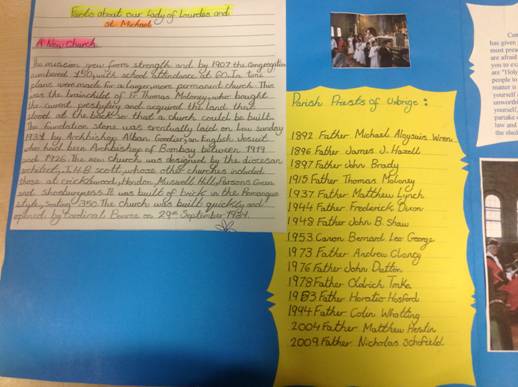 Facts about our Lady of Lourdes and
st Michael
A New Church
The mission grew from strength and by 1907 the congregation
numbered 450, with school attendance at 60. In time
plans were made for a larger, more permanent church. This
was the brainchild of Fr Thomas Moloney who bought
the current presbytery and acquired the land that
stood at the back so that a church could be built.
The foundation stone was eventually laid on Low Sunday
1931 by Archbishop Alban Goodier, an English Jesuit
who had been Archbishop of Bombay between 1919
and 1926. The new church was designed by the diocesan
architect, T.H.B scott, whose other churches included
those at cricklewood, Hendon, Muswell hill, Parsons Green
and It was built of brick in the Romanesque
style, Seating 350. The church was built quickly and
opened by Cardinal Bourne on 29th September 1931.
Parish Priests of Uxbrige:
1892 Father Michael Aloysius Wren
1896 Father James J. Hazell
1897 Father John Brady
1915 Father Thomas Moloney
1937 Father Matthew Lynch
1944 Father Frederick Dixon
1948 Father John B. Shaw
1953 Canon Bernard Leo George
1973 Father Andrew Clancy
1976 Father John Dutton
1978 Father Oldrich Trnka
1983 Father Horatio Hosford
1994 Father Colin Whatling
2004 Father Matthew Heslin
2009 Father Nicholas Schofield
has given
must preac
are afraid
you to exp
are "Holy
people to
matter is
yourself
unworthy
yourself,
partake
law and
the shed